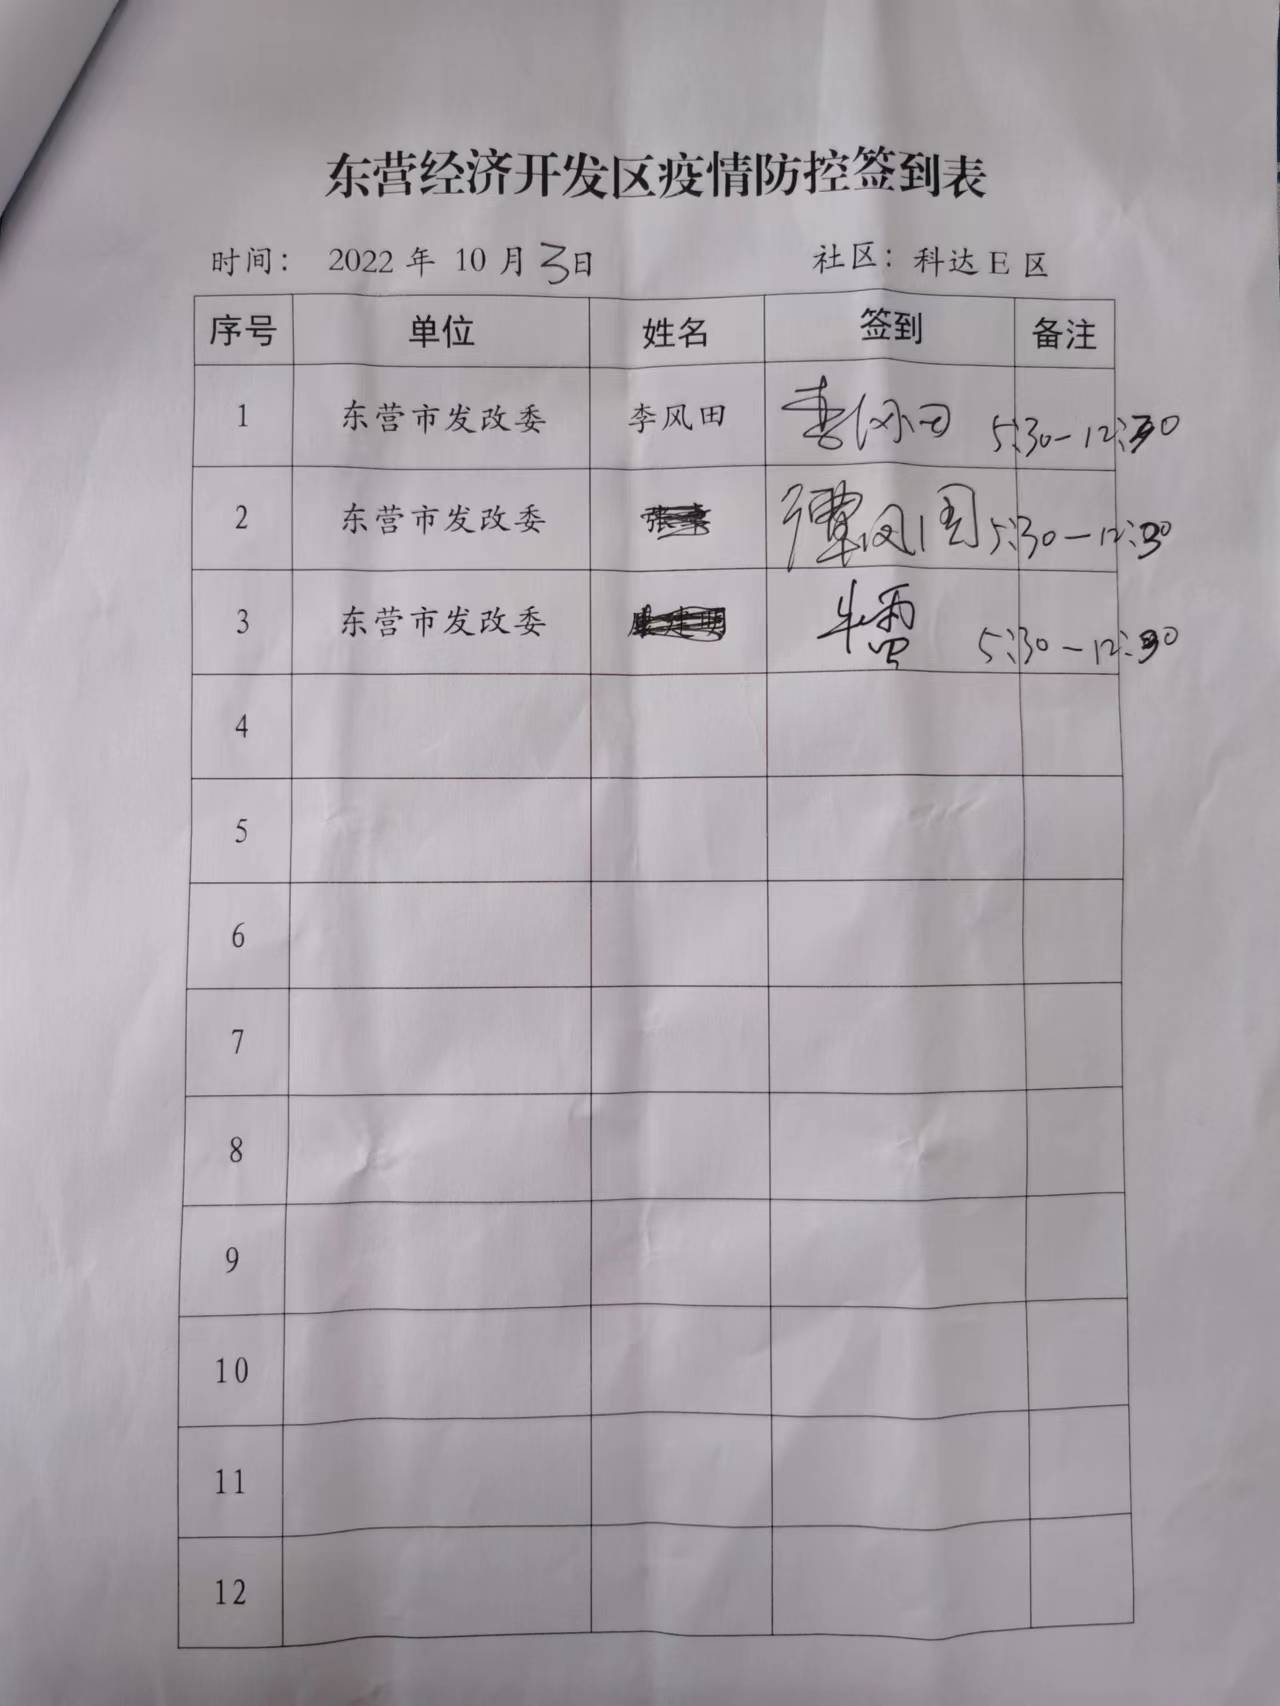 东营经济开发区疫情防控签到表
时间： 2022 年 10 月 3日 社区：科达 E 区
序号 单位 姓名 签到 备注
1 东营市发改委 李风田 李风田 5:30-12:30
2 东营市发改委 谭凤国 5:30-12:30
3 东营市发改委 5:30-12:30
4
5
6
7
8
9
10
11
12